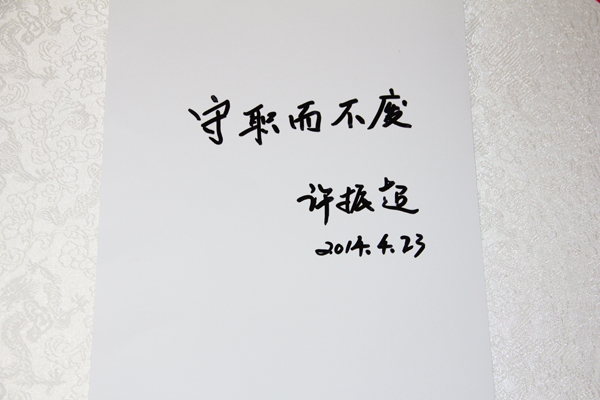 守职而不废
许振超
2014.4.23